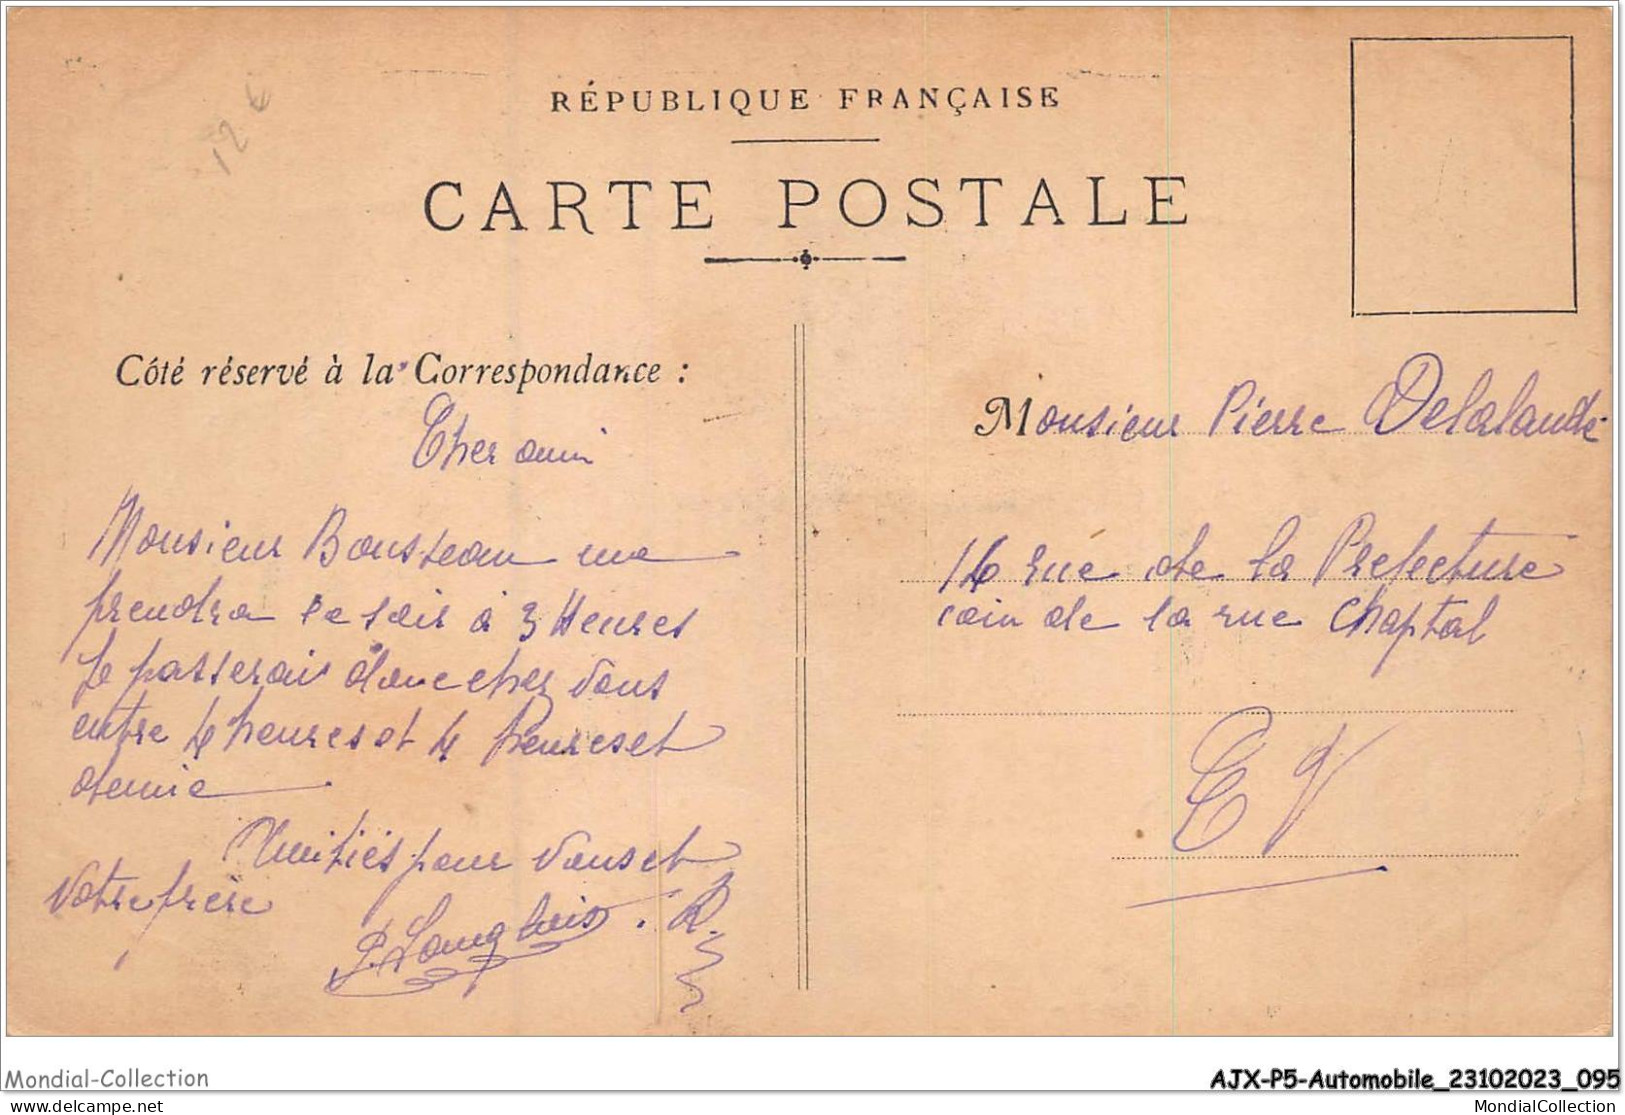 12 €
RÉPUBLIQUE FRANÇAISE
CARTE POSTALE
Côté réservé à la Correspondance :
Cher ami
Monsieur Bousteau me
prendra ce soir à 3 Heures
Je passerai donc chez vous
entre 4 heures et 4 heures et
demie
Amitiés pour vous et
votre frère
P. Langlois . R.
Monsieur Pierre Delalande
14 rue de la Prefecture
coin de la rue Chaptal
E V
Mondial-Collection
AJX-P5-Automobile_23102023_095
MondialCollection